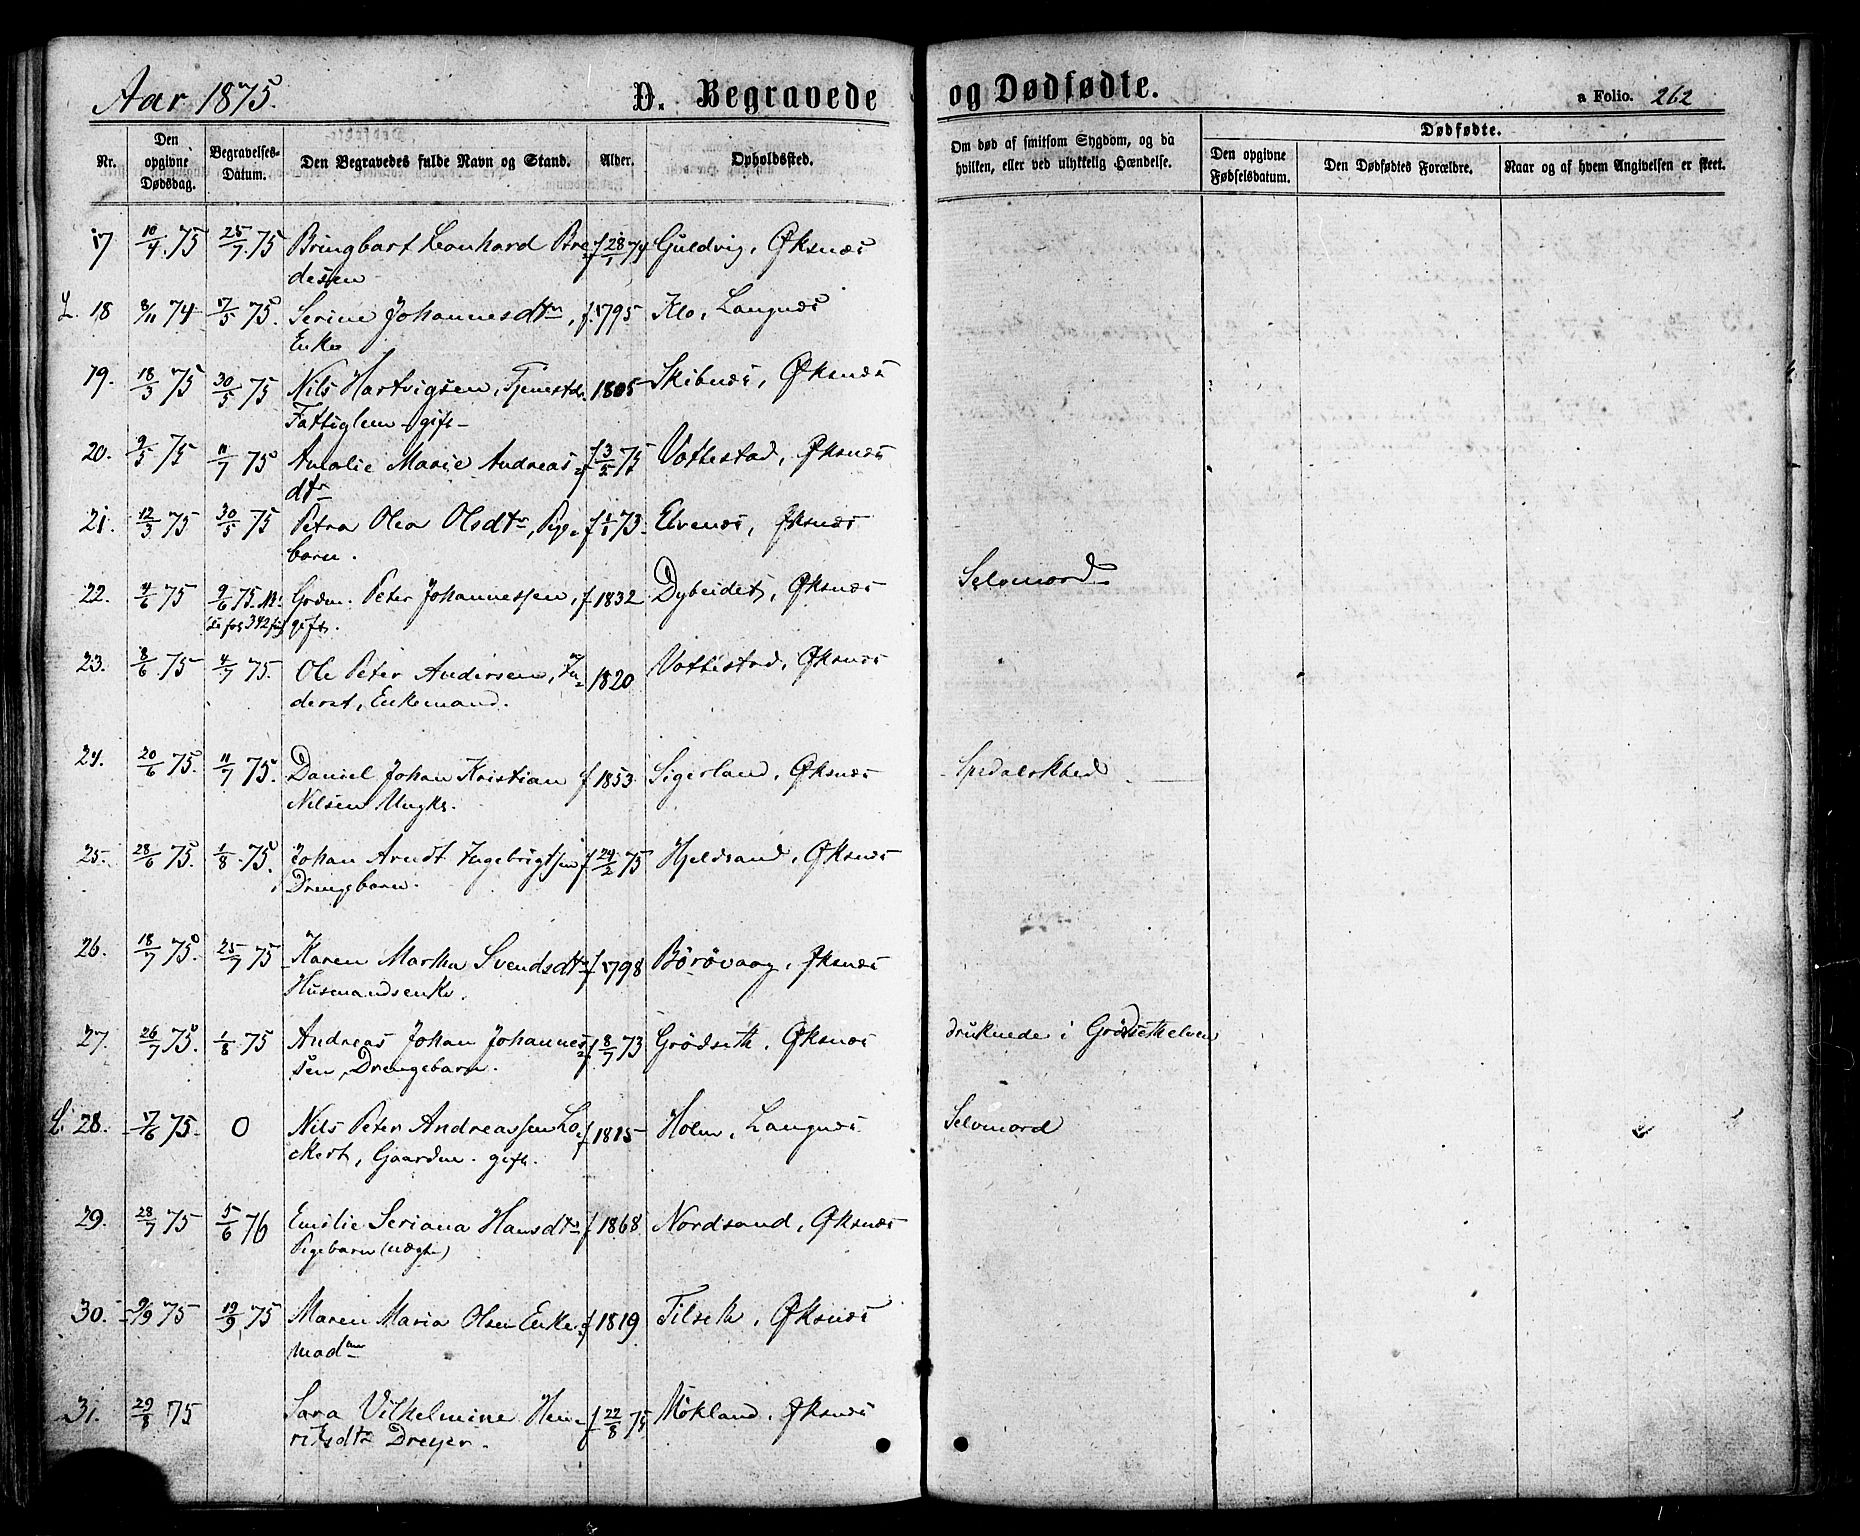 Aar 1875.
D. Begravede og Dødfødte.
a Folio. 262
Nr. Den opgivne Dødsdag. Begravelses-Datum. Den Begravedes fulde Navn og Stand. Alder. Opholdssted. Om død af smitsom Sygdom, og da hvilken, eller ved ulykkelig Hændelse. Dødfødte.
Den opgivne Fødselsdatum. Den Dødfødtes Forældre. Naar og af hvem Angivelsen er skeet.
17 10/4 75 25/7 75 Bringbart Leonhard Bre= f 28/1 74 Guldvig, Øksnæs
desen
L. 18 8/11 74 17/5 75. Serine Johannesdtr, f. 1795 Klo, Langnæs
Enke
19. 18/3 75 30/5 75 Nils Hartvigsen, 1805 Skibnæs, Øksnæs
Fattiglem - gift -
20. 9/5 75 11/7 75 Amalie Marie Andreas= f 3/5 75 Vottestad, Øksnæs
dtr
21. 12/3 75 30/5 75 Petra Olea Olsdtr, Pige= f 1/1 73. Elvenæs, Øksnæs
barn.
22. 4/6 75 9/6 75. Grdm. Peter Johannessen, f. 1832 Dybeidet, Øksnæs Selvmord
342 gift.
23. 8/6 75 4/7 75. Ole Peter Andersen, In= 1820 Vottestad, Øksnæs
derst, Enkemand.
24. 20/6 75. 11/7 75. Daniel Johan Kristian f 1853 Sigerland, Øksnæs Spedalskhed
Nilsen Ungkr.
25. 28/6 75. 1/8 75. Johan Arndt Ingebrigtsen f 24/2 75 Hjeldsand, Øksnæs
Drengebarn.
26. 18/7 75. 25/7 75 Karen Martha Svendsdtr f. 1798 Börövaag, Øksnæs
Husmandsenke.
27. 26/7 75. 1/8 75 Andreas Johan Johannes= f 8/7 73 Grödseth, Øksnæs druknede i Grödsethelven
sen, Drengebarn.
L. 28. 17/6 75. 0 Nils Peter Andreassen Lo= f 1815 Holm, Langnæs Selvmord
ckert, Gaardm. gift.
29. 28/7 75 5/6 76 Emilie Seriana Hansdtr f 1868 Nordsand, Øksnæs
Pigebarn (uægte)
30. 9/9 75 19/9 75 Maren Maria Olsen Enke= f 1819 Tilseth, Øksnæs
madam
31. 29/8 75 Sara Vilhelmine Hen= f 22/8 75 Mökland, Øksnæs
riksdtr Dreyer.